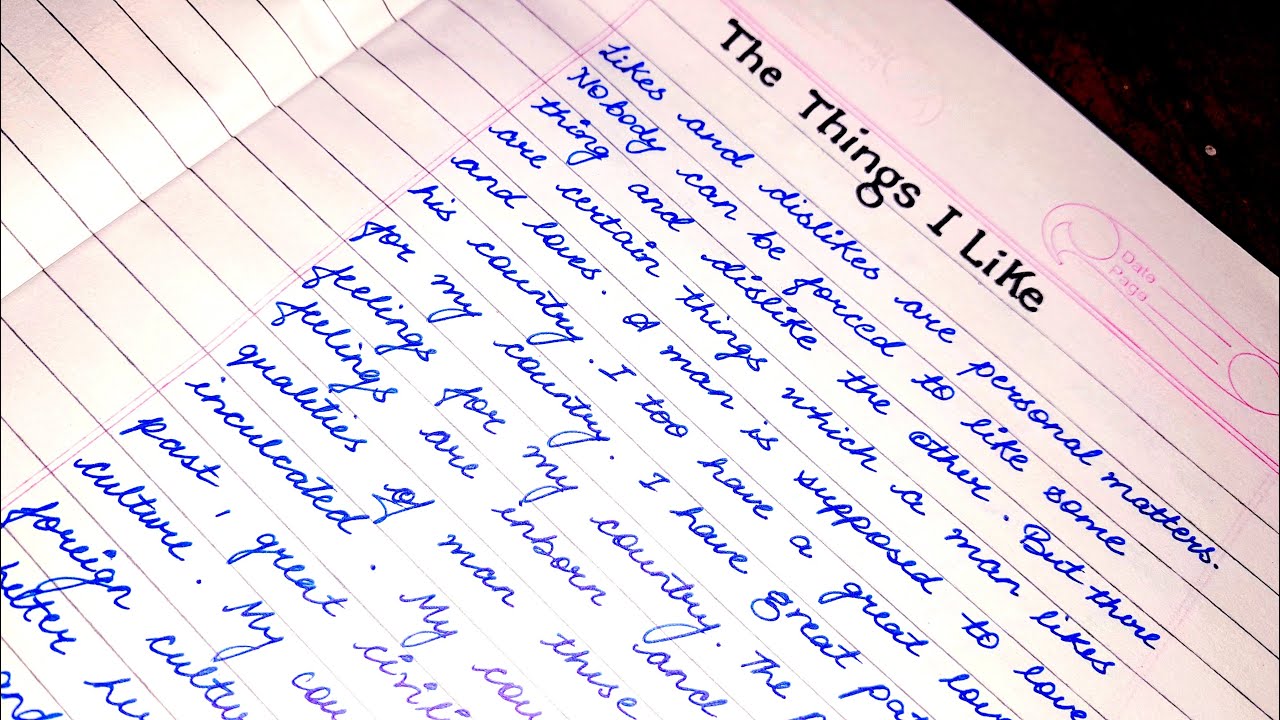 The Things I LiKe
Date
Page
Likes and dislikes are personal matters.
Nobody can be forced to like some
thing and dislike the other. But there
are certain things which a man likes
and loves. A man is supposed to love
his country. I too have a great lov
for my country. I have great pa
feelings for my country. The
feelings are inborn and
qualities of man these
inculcated. My cou
past, great civili
culture. My cou
foreign cultu
better hu
and